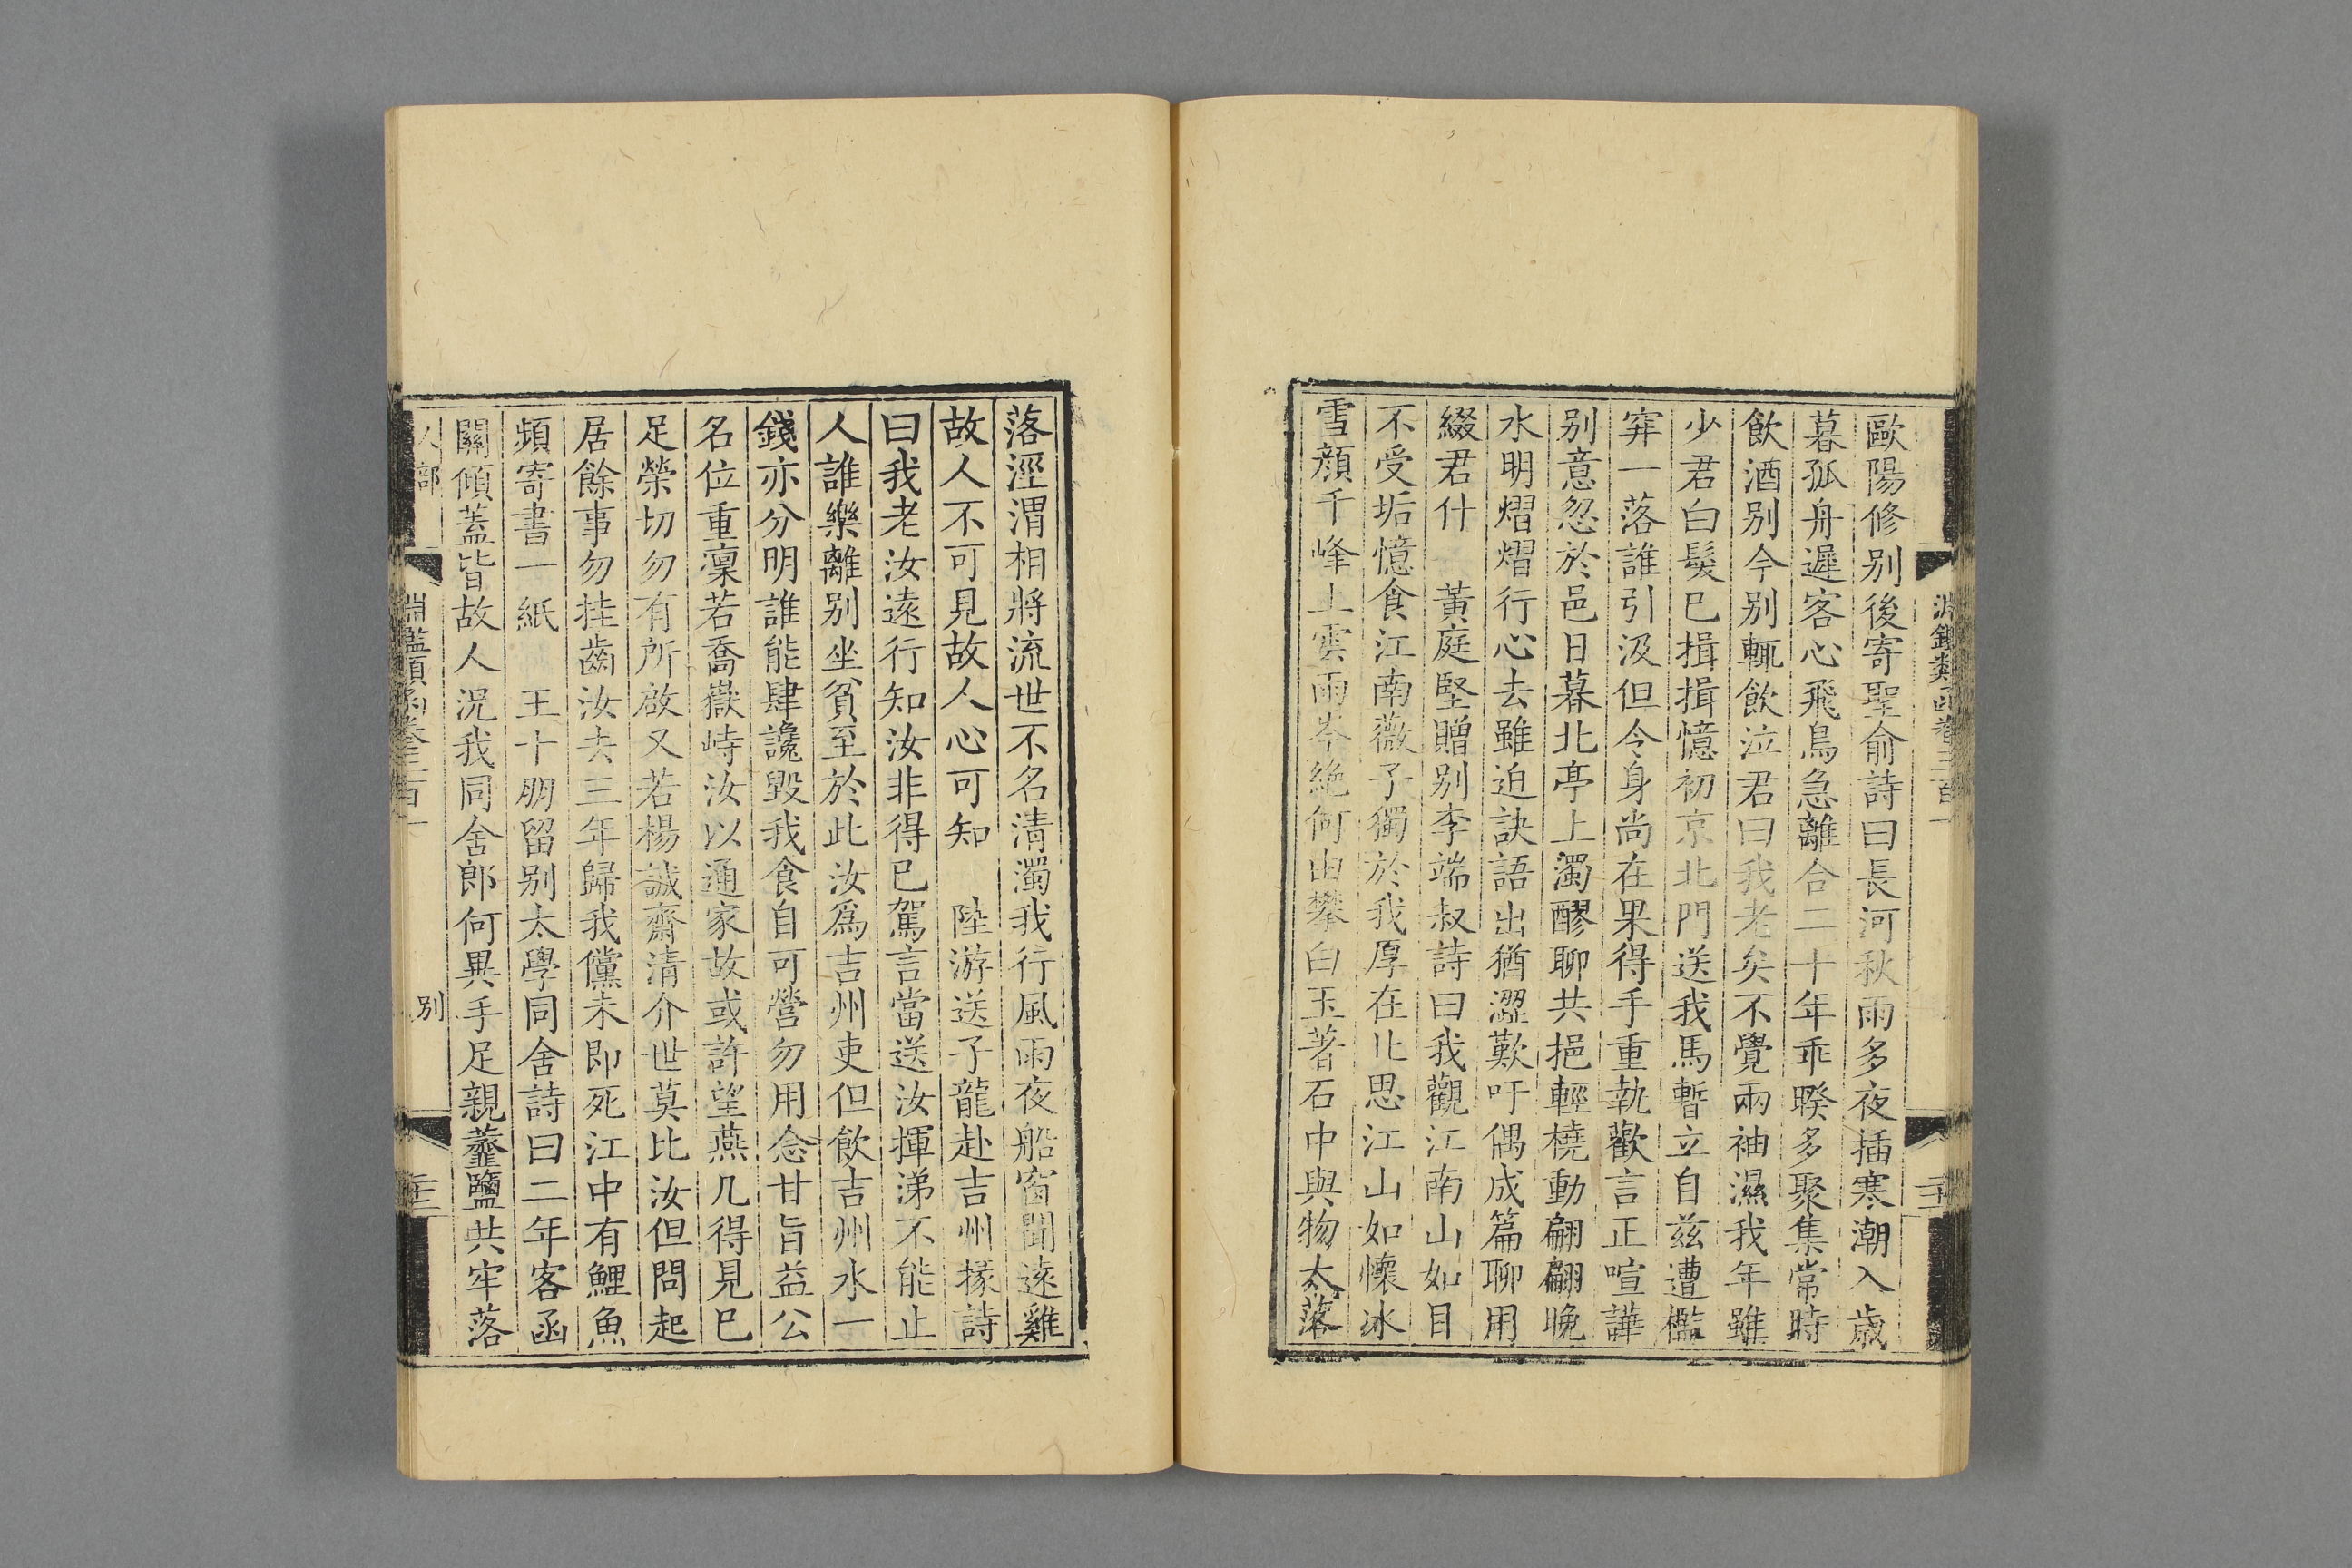 淵鑑類函卷三百一
歐陽修别後寄聖俞詩曰長河秋雨多夜插寒潮入歲
暮孤舟遲客心飛鳥急離合二十年乖暌多聚集常時
飲酒别今别輒飲泣君曰我老矣不覺兩袖濕我年雖
少君白髮已揖揖憶初京北門送我馬暫立自兹遭檻
穽一落誰引汲但令身尚在果得手重執歡言正喧譁
别意忽於邑日暮北亭上濁醪聊共挹輕橈動翩翩晚
水明熠熠行心去雖迫訣語出猶澀歎吁偶成篇聊用
綴君什　黃庭堅贈别李端叔詩曰我觀江南山如目
不受垢憶食江南薇子獨於我厚在北思江山如懷冰
雪顔千峰上雲雨岑絶何由攀白玉著石中與物太落
落涇渭相將流世不名清濁我行風雨夜船窗聞遠雞
故人不可見故人心可知　陸游送子龍赴吉州掾詩
曰我老汝遠行知汝非得已駕言當送汝揮涕不能止
人誰樂離别坐貧至於此汝爲吉州吏但飲吉州水一
錢亦分明誰能肆讒毀我食自可營勿用念甘旨益公
名位重凛若喬嶽峙汝以通家故或許望燕几得見已
足榮切勿有所啟又若楊誠齋清介世莫比汝但問起
居餘事勿挂齒汝去三年歸我儻未即死江中有鯉魚
頻寄書一紙　王十朋留别太學同舍詩曰二年客函
關傾蓋皆故人况我同舍郎何異手足親虀鹽共牢落
人部
淵鑑類函卷三百一
别